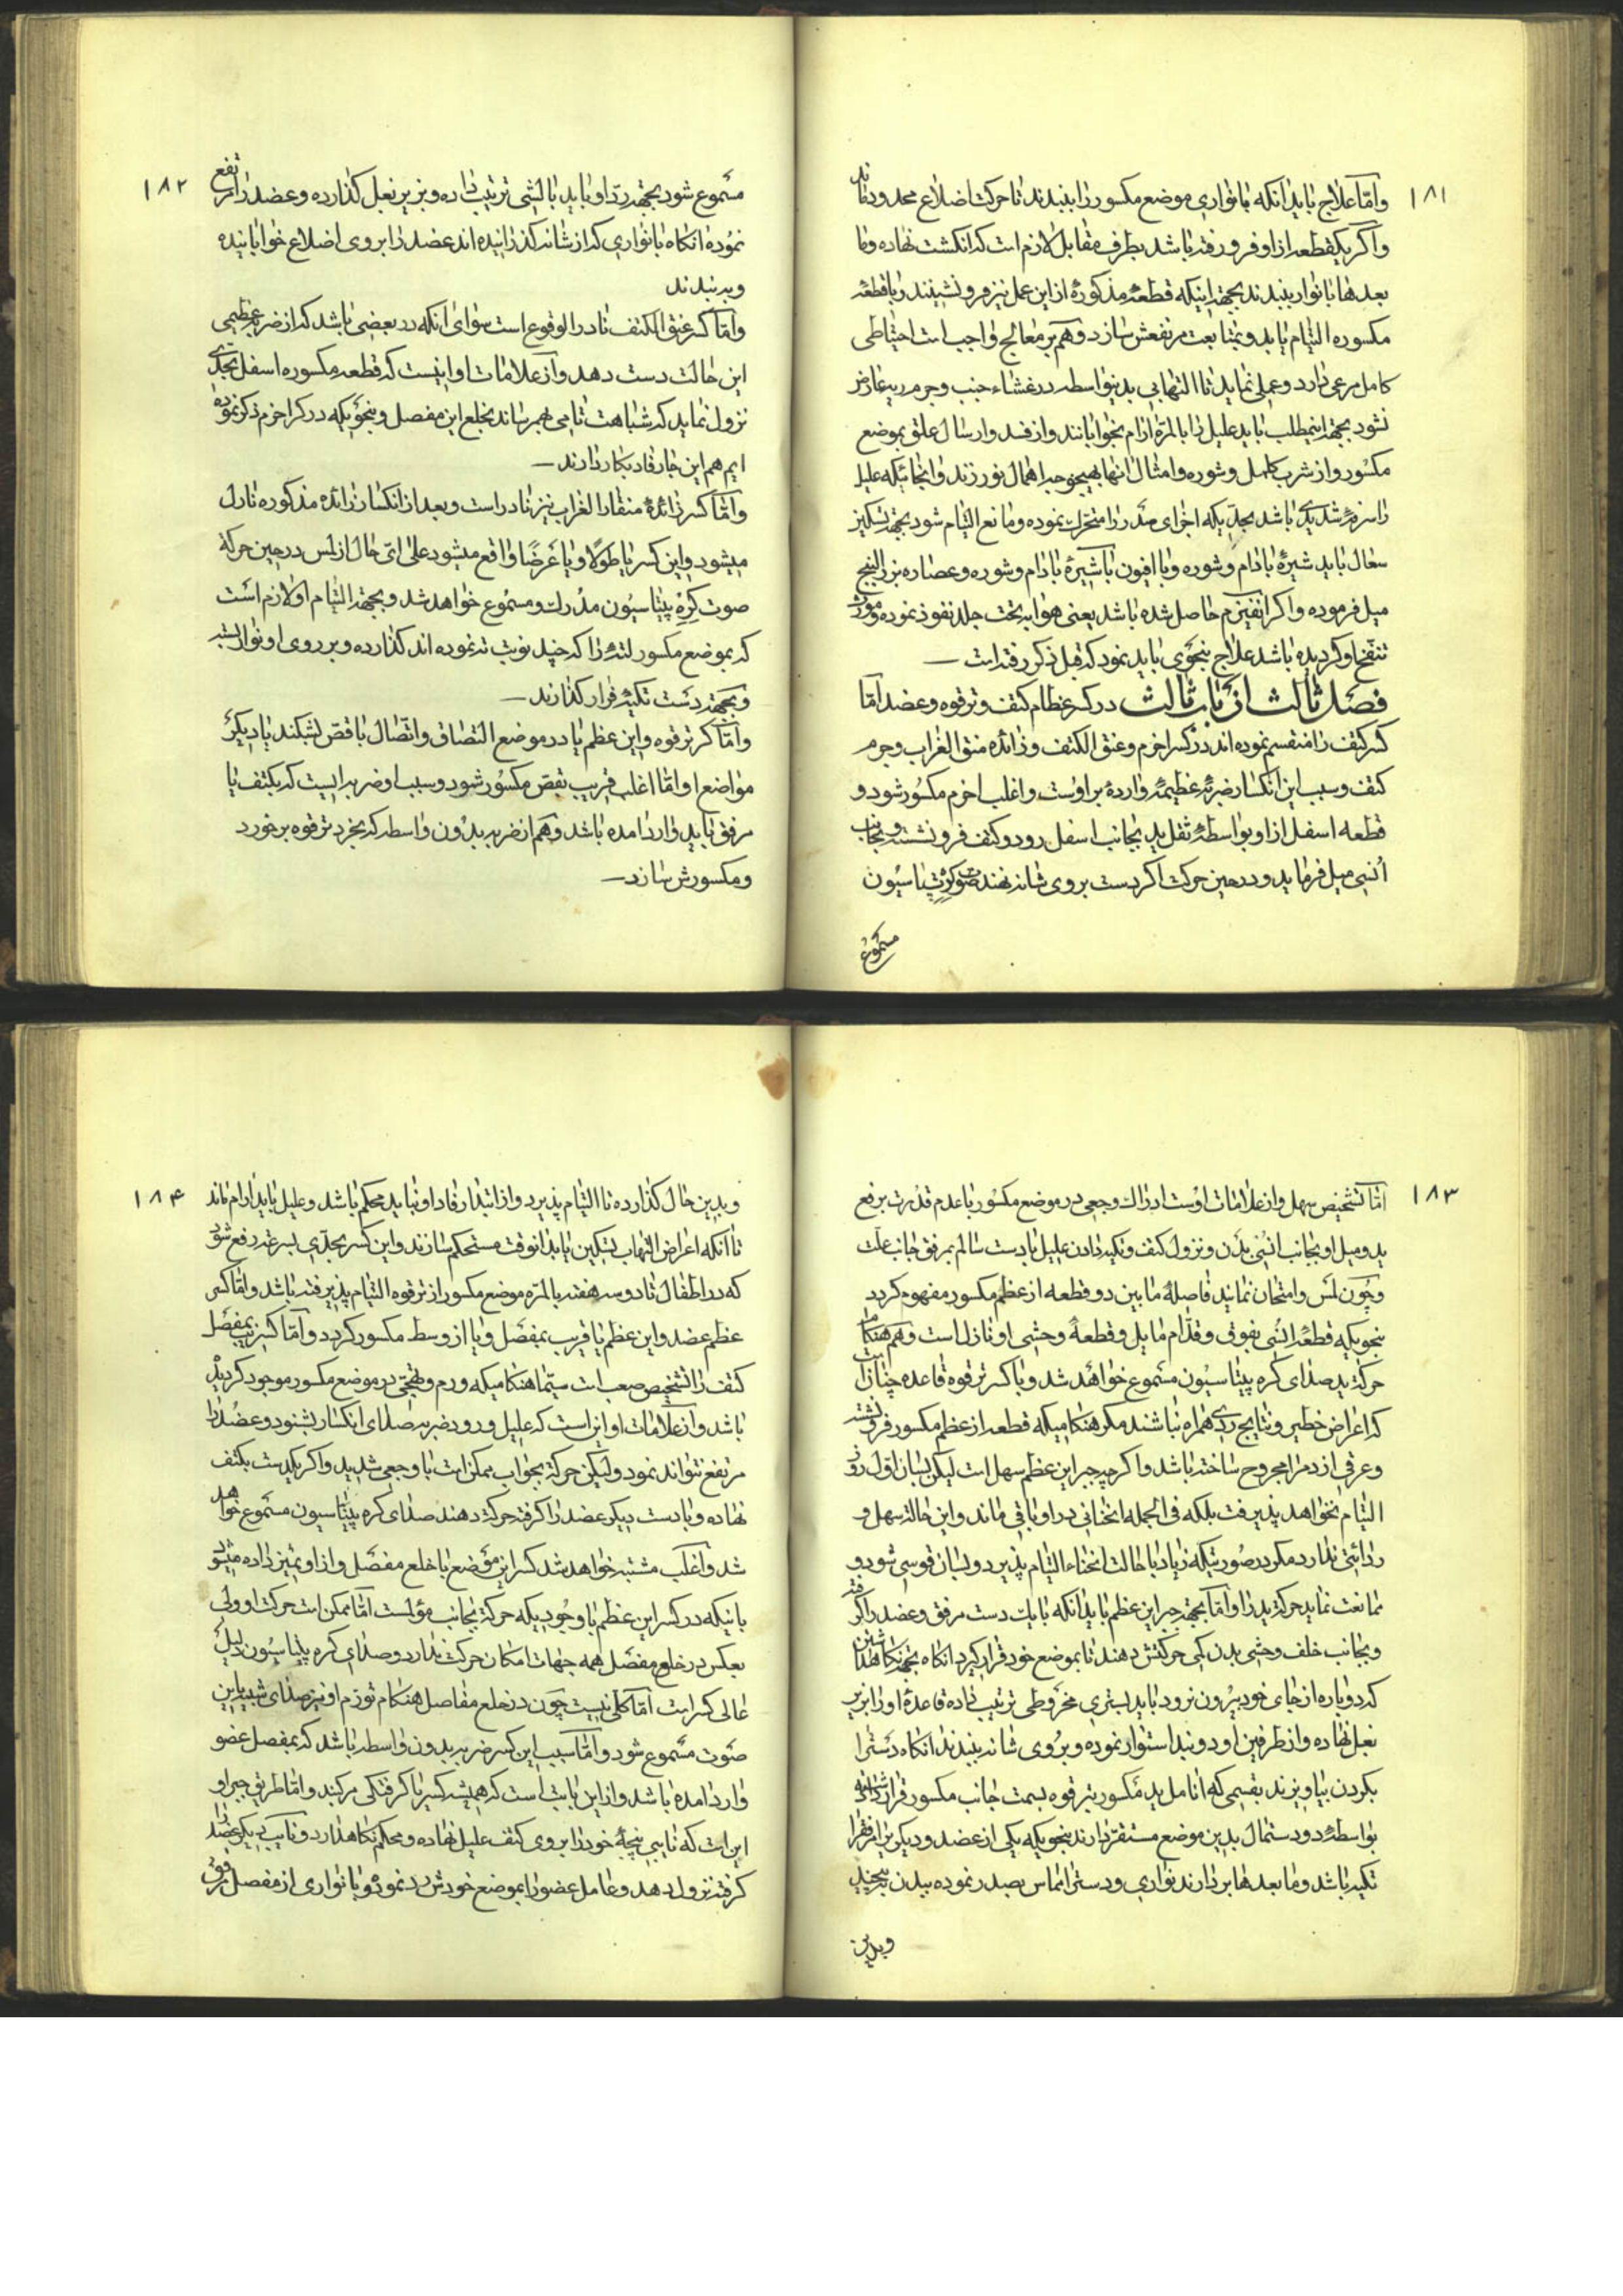 ۱۸۱
وامّا علاج باید آنکه بانواری موضع مکسور را ببندند تا حرکت اضلاع محدود ماند
واکر یکقطعه از او فرو رفته باشد بطرف مقابل لازم است که انکشت نهاده وما
بعدها بانوار ببندند بجهة اینکه قطعهٔ مذکوره از این عمل نیز فرو ننشیند وبا قطعهٔ
مکسوره التیام یابد وبمتابعت مرتفعش سازد وهم بر معالج واجب است احتیاطی
کامل مرعی دارد وعملی نماید تا التهابی بدینواسطه در غشاء جنب وجرم ریه عارض
نشود بجهة اینمطلب باید علیل را بالمرّة آرام بخوابانند واز فصد وارسال علق بموضع
مکسور واز شرب کلمل وشوره وامثال انها بهیچوجه اهمال نورزند وانجائیکه علیل
را سرفهٔ شدیدی باشد بحدّیکه اجزای صدر را متحرک نموده ومانع التیام شود بجهة تسکین
سعال باید شیرهٔ بادام وشوره ویا افیون با شیرهٔ بادام وشوره وعصاره بزر البنج
میل فرموده واکر انفیزم حاصل شده باشد یعنی هوا به تحت جلد نفوذ نموده ومورث
تنفّخ او کردیده باشد علاج بنحوی باید نمود که قبل ذکر رفته است
فصل ثالث از باب ثالث در کسر عظام کتف وترقوه وعضد امّا
کسر کتف را منقسم نموده اند در کسر اخرم وعنق الکتف وزائده منقار الغراب وجرم
کتف وسبب این انکسار ضربهٔ عظیمهٔ واردهٔ بر اوست واغلب اخرم مکسور شود و
قطعه اسفل از او بواسطهٔ ثقل ید بجانب اسفل رود وکتف فرو نشسته وبجانب
اُنسی میل فرماید ودر حین حرکت اکر دست بروی شانه نهند صوت کرپیتاسیُون
مسموع
۱۸۲
مسموع شود بجهة ردّ او باید بالشی ترتیب داده وبزیر بغل کذارده وعضد را مرتفع
نموده انکاه بانواری که از شانه کذرانیده اند عضد را بروی اضلاع خوابانیده
وببندند
وامّا کسر عنق الکتف نادر الوقوع است سوای انکه در بعضی باشد که از ضربهٔ عظیمی
این حالت دست دهد واز علامات او اینست که قطعه مکسوره اسفل بحدّی
نزول نماید که شباهت تامی بهم رساند بخلع این مفصل وبنحویکه در کسر اخرم ذکر نموده
ایم هم این جا رفاد بکار دارند
وامّا کسر زائدهٔ منقار الغراب نیز نادر است وبعد از انکسار زائده مذکوره نازل
میشود واین کسر یا طولًا ویا عرضًا واقع میشود علی ایّ حال از لمس در حین حرکة
صوت کره پیتاسیُون مدرک ومسموع خواهد شد وبجهة التیام او لازم است
که بموضع مکسور لتهٔ را که چند نوبت ته نموده اند کذارده وبر روی او نوار بسته
وبجهة دست تکیهٔ قرار کذارند
وامّا کسر ترقوه واین عظم یا در موضع التصاق واتّصال با قص بشکند یا دیکر
مواضع او امّا اغلب قریب بقص مکسور شود وسبب او ضربه ایست که بکتف یا
مرفق یا ید وارد امده باشد وهم از ضربه بدون واسطه که بخرد ترقوه بر خورد
ومکسورش سازد
۱۸۳
امّا تشخیص سهل واز علامات اوست ادراک وجعی در موضع مکسور با عدم قدرت بر رفع
ید ومیل او بجانب انسی بدن ونزول کتف وتکیه دادن علیل با دست سالم بمرفق جانب علّت
وچون لمس وامتحان نمایند فاصلهٔ ما بین دو قطعه از عظم مکسور مفهوم کردد
بنحویکه قطعهٔ انسی بفوق وقدّام مایل وقطعهٔ وحشی او نازل است وهم هنکام
حرکة ید صدای کره پیتاسیُون مسموع خواهد شد وبا کسر ترقوه قاعده چنانست
که اعراض خطیر ونتایج ردی همراه نباشند مکر هنکامیکه قطعه از عظم مکسور فرو نشسته
وعرقی از دم را مجروح ساخته باشد واکرچه جبر این عظم سهل است لیکن بسان اول روز
التیام نخواهد پذیرفت بلکه فی الجمله انحنائی در او باقی ماند واین حالت سهل و
ردائتی ندارد مکر در صورتیکه زیاد با حالت انحناء التیام پذیرد وبسان قوسی شود و
ممانعت نماید حرکة ید را وامّا بجهة جبر این عظم باید انکه با یک دست مرفق وعضد را کرفته
وبجانب خلف وحشی بدن کمی حرکتش دهند تا بموضع خود قرار کیرد انکاه بجهة نکاهداشتن
که دوباره از جای خود بیرون نرود باید بستری مخروطی ترتیب داده قاعدهٔ او را بزیر
بغل نهاده واز طرفین او دو بند استوار نموده وبروی شانه ببندند انکاه دست را
بکردن بیاویزند بقسمی که انامل ید مکسور بترقوه بسمت جانب مکسور قرار داشته
بواسطهٔ دو دستمال بدین موضع مستقرّ دارند بنحویکه یکی از عضد ودیکری از مرفق را
تکیه باشد وما بعدها بردارند نواری ودست را مماس بصدر نموده ببدن بپیچند
وبدین
۱۸۴
وبدین حال کذارده تا التیام پذیرد واز ابتدا رفاد او نباید محکم باشد وعلیل باید ارام ماند
تا انکه اعراض التهاب تسکین یابد انوقت مستحکم سازند واین کسر بحدّی بسرعة رفع شود
که در اطفال تا دو سه هفته بالمرّه موضع مکسور از ترقوه التیام پذیرفته باشد وامّا کسر
عظم عضد واین عظم یا قریب بمفصل ویا از وسط مکسور کردد وامّا کسر قریب بمفصل
کتف را تشخیص صعب است سیّما هنکامیکه ورم وتهیّجی در موضع مکسور موجود کردیده
باشد واز علامات او این است که علیل ورود ضربه صدای انکسار بشنود وعضد را
مرتفع نتواند نمود ولیکن حرکة بجوانب ممکن است با وجعی شدید واکر یکدست بکتف
نهاده وبا دست دیکر عضد را کرفته حرکة دهند صدای کره پیتاسیون مسموع خواهد
شد واغلب مشتبه خواهد شد کسر این موضع با خلع مفصل واز او تمیز داده میشود
باینکه در کسر این عظم با وجودیکه حرکة بجانب مؤلست امّا ممکن است حرکت او ولی
بعکس در خلع مفصل همه جهات امکان حرکت ندارد وصدای کره پیتاسیُون دلیل
غالی کسر است امّا کلّی نیست چون در خلع مفاصل هنکام تورّم او نیز صدای شبیه باین
صوت مسموع شود وامّا سبب این کسر ضربه بدون واسطه باشد که بمفصل عضو
وارد امده باشد واز این بابت است که همیشه کسر با کرفتکی مرکبند وامّا طریق جبر او
این است که نایبی پنجهٔ خود را بروی کتف علیل نهاده ومحکم نکاهدارد ونایب دیکر عضد را
کرفته نزول دهد وعامل عضو را بموضع خودش رد نموده وبانواری از مفصل مرفق